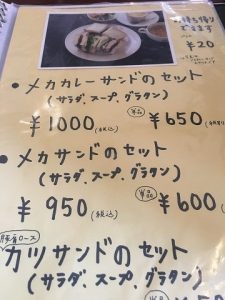 お持ち帰り
できます
¥20
・メカカレーサンドのセット
(サラダ、スープ、グラタン)
¥1000(税込) 単品 ¥650
・メカサンドのセット
(サラダ、スープ、グラタン)
¥950(税込) 単品 ¥600
豚肩ロース
カツサンドのセット
(サラダ、スープ、グラタン)